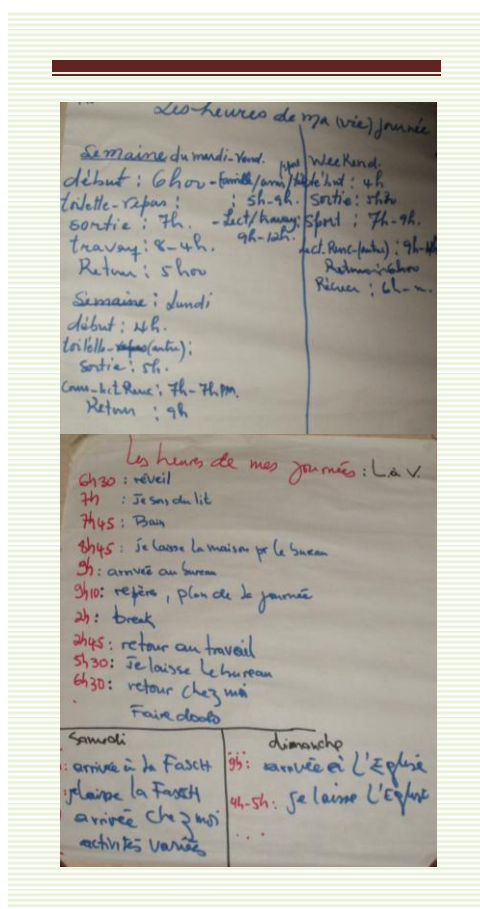 Les heures de ma (vie) journée
Semaine du mardi-Vend.
début : 6h00 - famille/amis
toilette-repas : : 5h-9h.
sortie : 7h. - Lect/travay:
travay : 8-4h. 9h-12h.
Retour : 5h00
Semaine : Lundi
début : 4h.
toilette-repas (autre) :
sortie : 5h.
7h-7h PM.
Retour : 9h
Weekend.
début : 4h
Sortie : 5h30
Sport : 7h-9h.
Renc-(autre) : 9h-
Retour : 6h00
: 6h-
Les heures de mes journées : L. à V.
6h30 : réveil
7h : Je sors du lit
7h45 : Bain
8h45 : Je laisse la maison pr le bureau
9h : arrivée au bureau
9h10 : repère, plan de la journée
2h : break
2h45 : retour au travail
5h30 : Je laisse le bureau
6h30 : retour chez moi
Faire dodo
Samedi
: arrivée à la FASCH
: laisse la FASCH
arrivée chez moi
activités variées
dimanche
9h : arrivée à L'Eglise
4h-5h : Je laisse L'Eglise
...